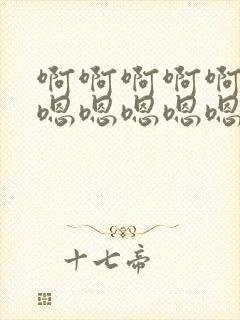 啊啊啊啊啊
嗯嗯嗯嗯嗯
十七帝